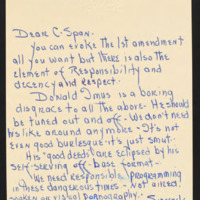 Dear C-Span-
you can evoke the 1st amendment
all you want but there is also the
element of Responsibility and
decency and respect.
Donald Imus is a boring
disgrace to all the above. He should
be tuned out and off - We don't need
his like around anymore - It's not
even good burlesque it's just smut.
His "good deeds" are eclipsed by his
self-serving off-base format-
We need responsible programming
in these dangerous times - Not wired,
spoken or visual pornography.
Sincerely